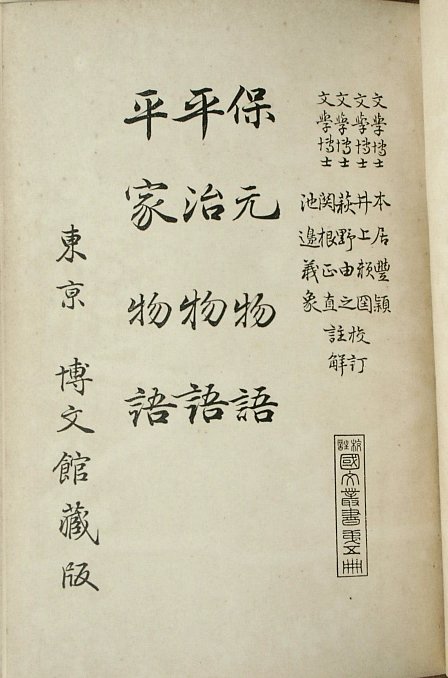 文學博士 本居豐穎
文學博士 井上頼圀 校訂
文學博士 萩野由之
文學博士 関根正直 註解
池邊義象
校註 國文叢書第五冊
保元物語
平治物語
平家物語
東京 博文館藏版